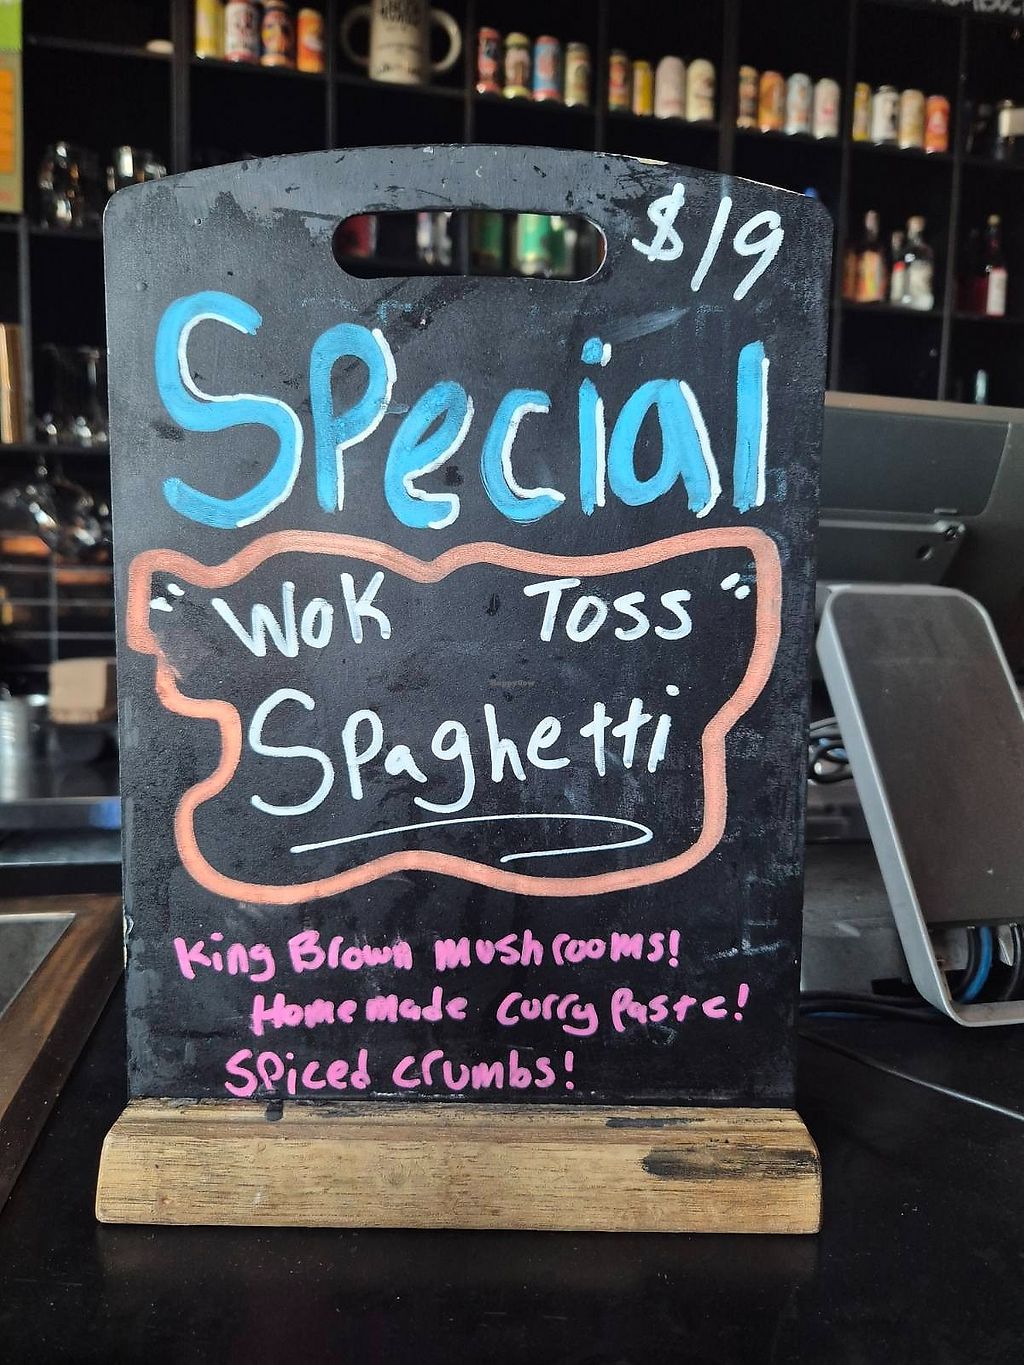 $19
Special
"Wok Toss"
Spaghetti
King Brown mushrooms!
Homemade curry Paste!
Spiced crumbs!